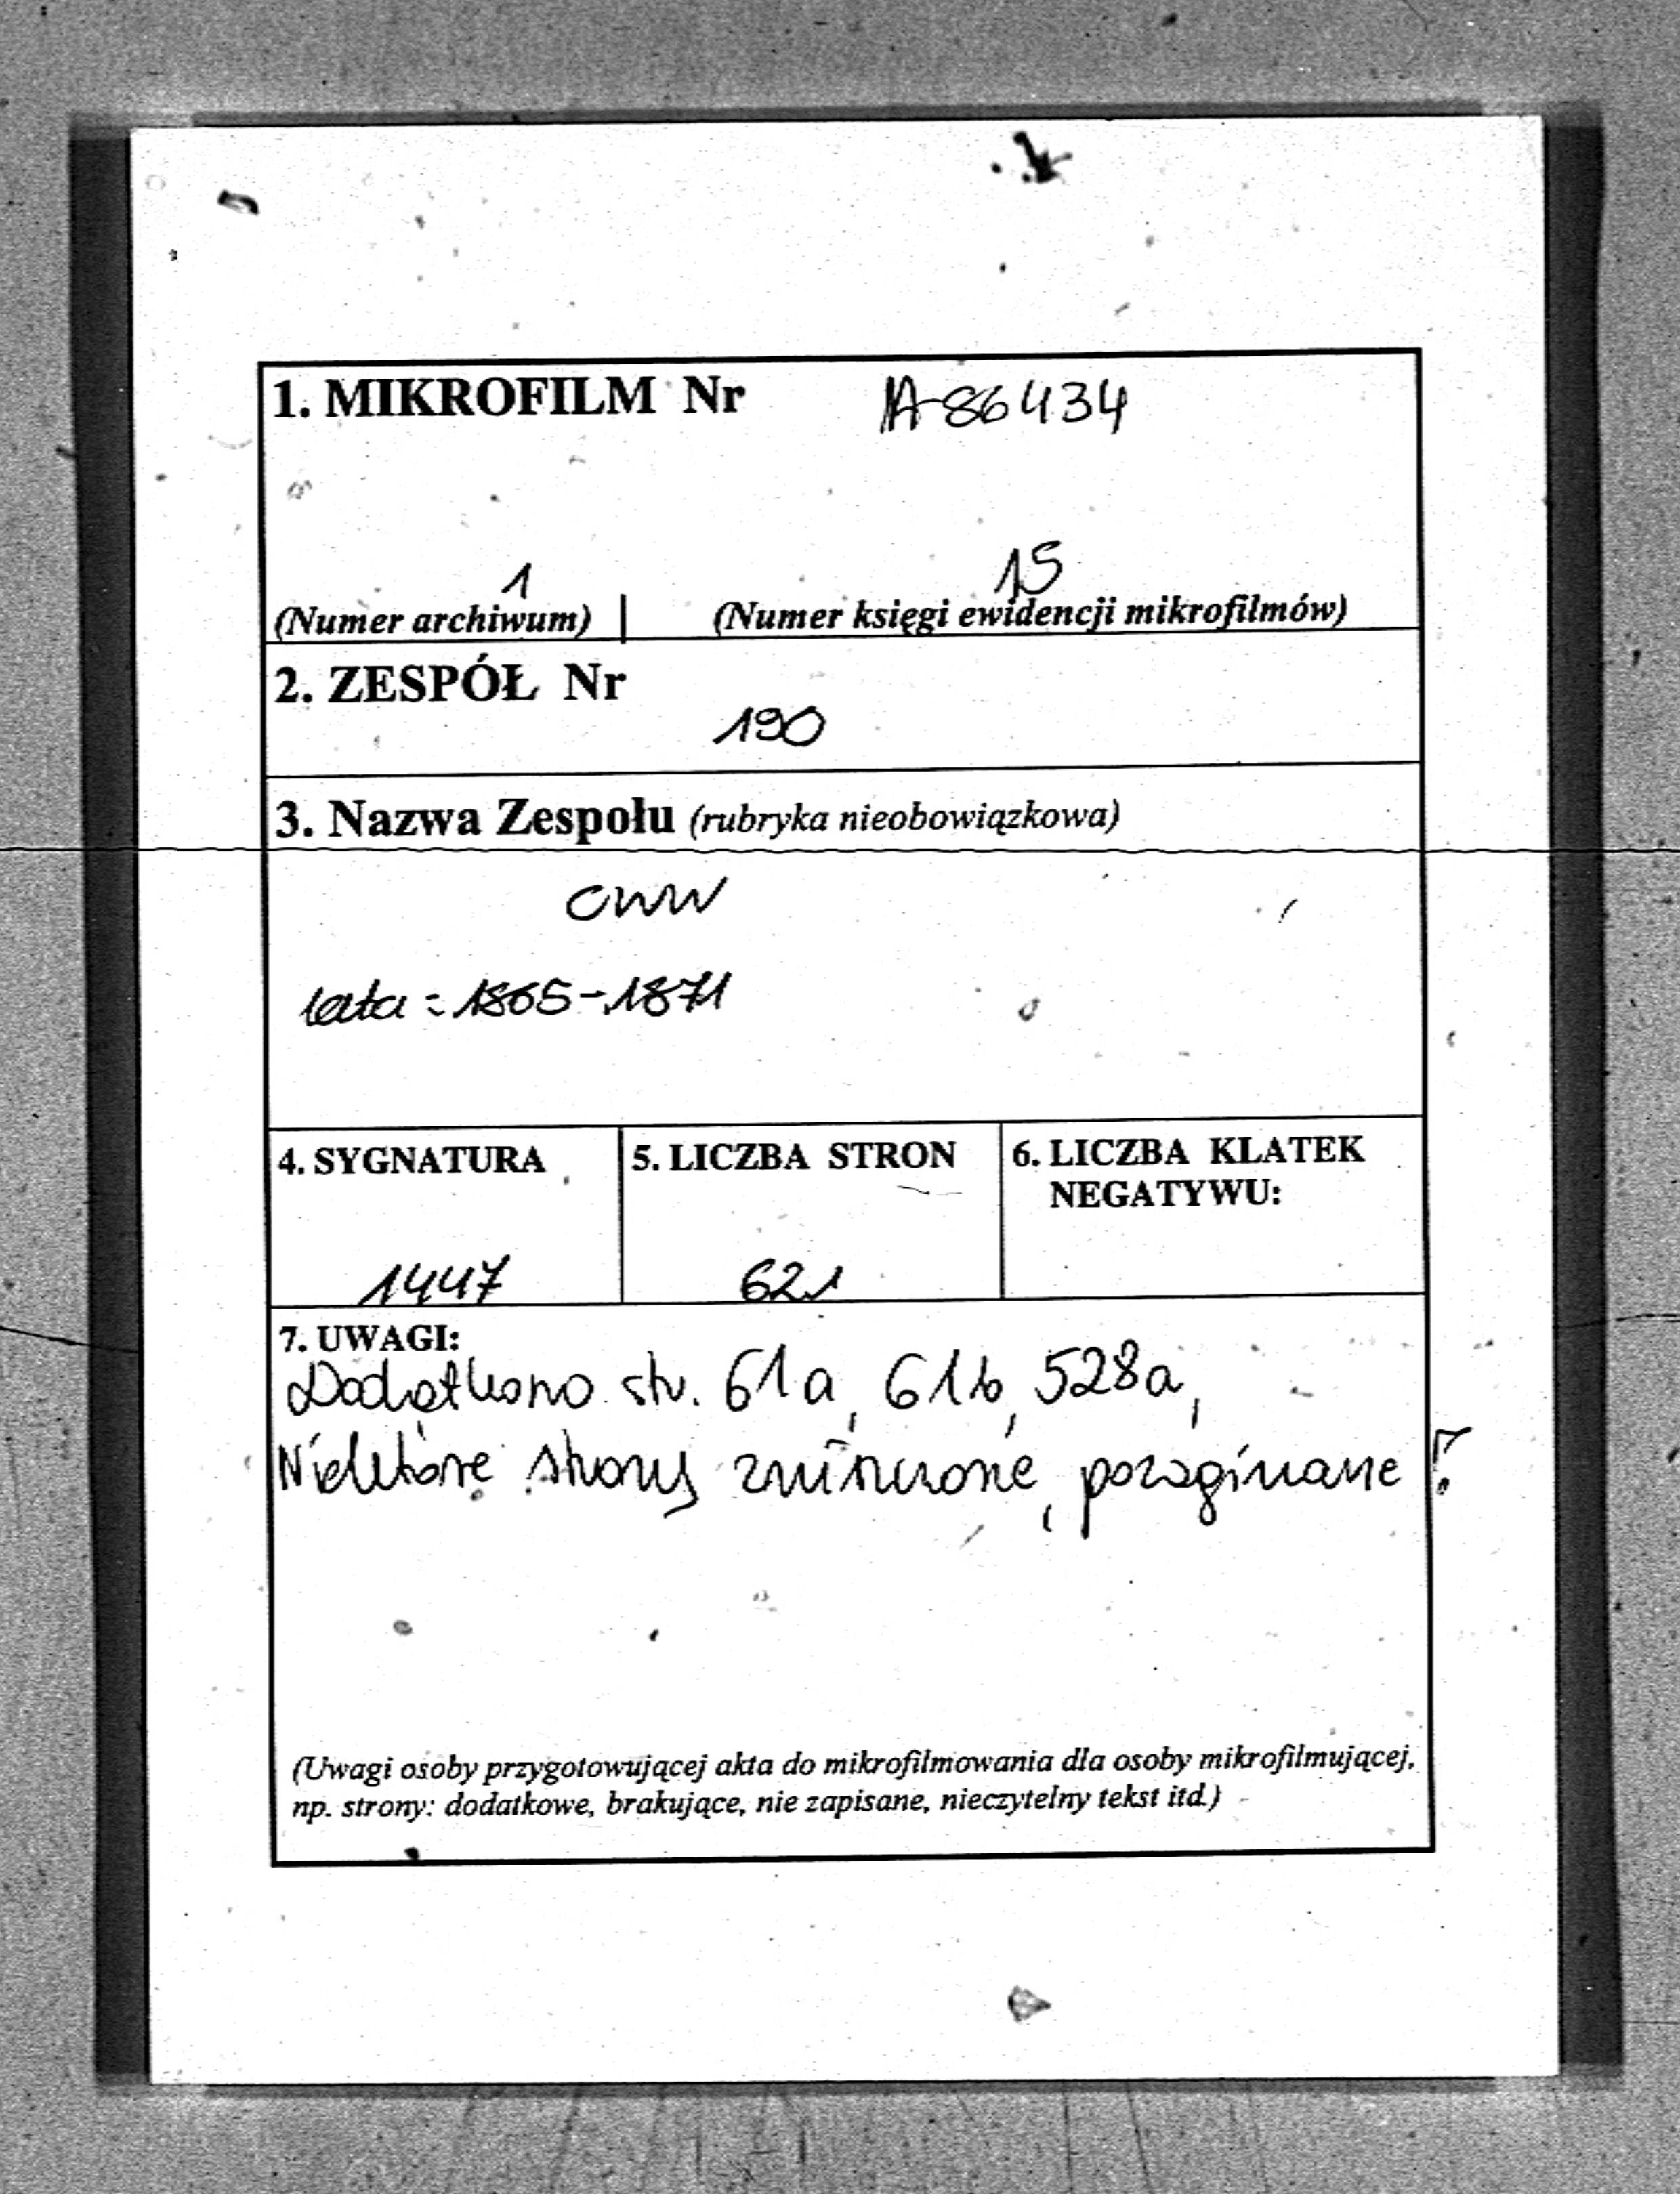 1. MIKROFILM Nr A-86434
1 15
(Numer archiwum) | (Numer księgi ewidencji mikrofilmów)
2. ZESPÓŁ Nr
190
3. Nazwa Zespołu (rubryka nieobowiązkowa)
CWW
lata = 1865-1871
4. SYGNATURA 5. LICZBA STRON 6. LICZBA KLATEK
NEGATYWU:
1447 621
7. UWAGI:
Dodatkowo str. 61a, 61b, 528a,
Niektóre strony zniszczone, pozaginane!
(Uwagi osoby przygotowującej akta do mikrofilmowania dla osoby mikrofilmującej,
np. strony: dodatkowe, brakujące, nie zapisane, nieczytelny tekst itd.)